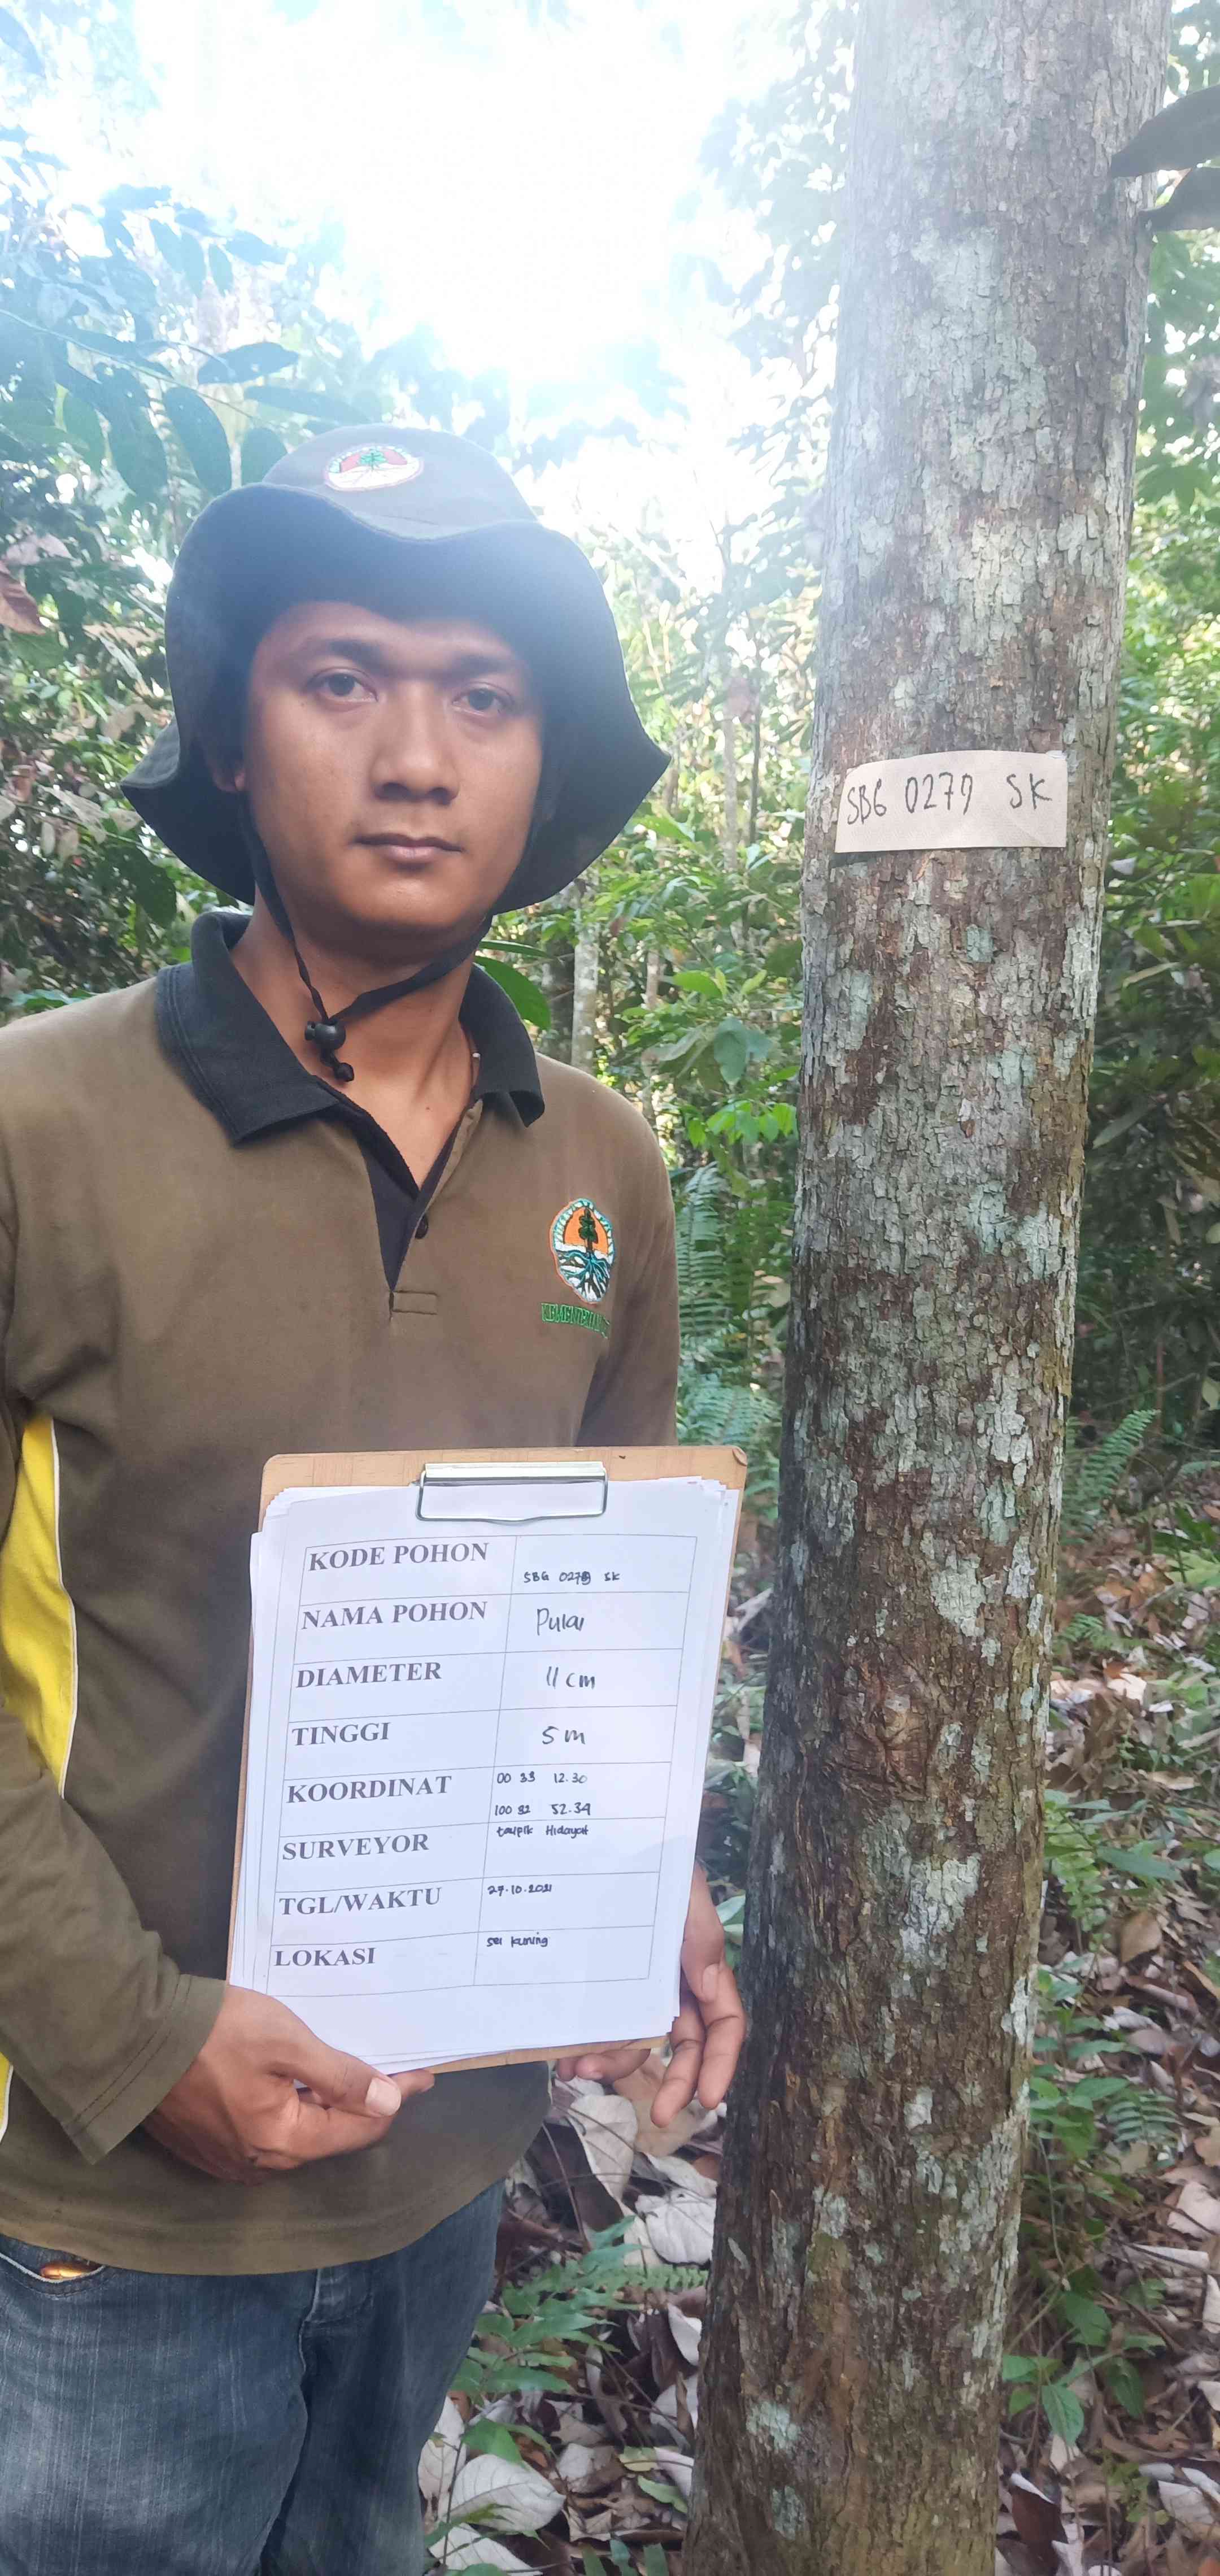 SBG 0279 SK
KEMENTERIAN
KODE POHON SBG 0279 SK
NAMA POHON Pulai
DIAMETER 11 cm
TINGGI 5 m
KOORDINAT 00 33 12.30
100 32 52.34
SURVEYOR taupik Hidayat
TGL/WAKTU 27.10.2021
LOKASI sei kuning